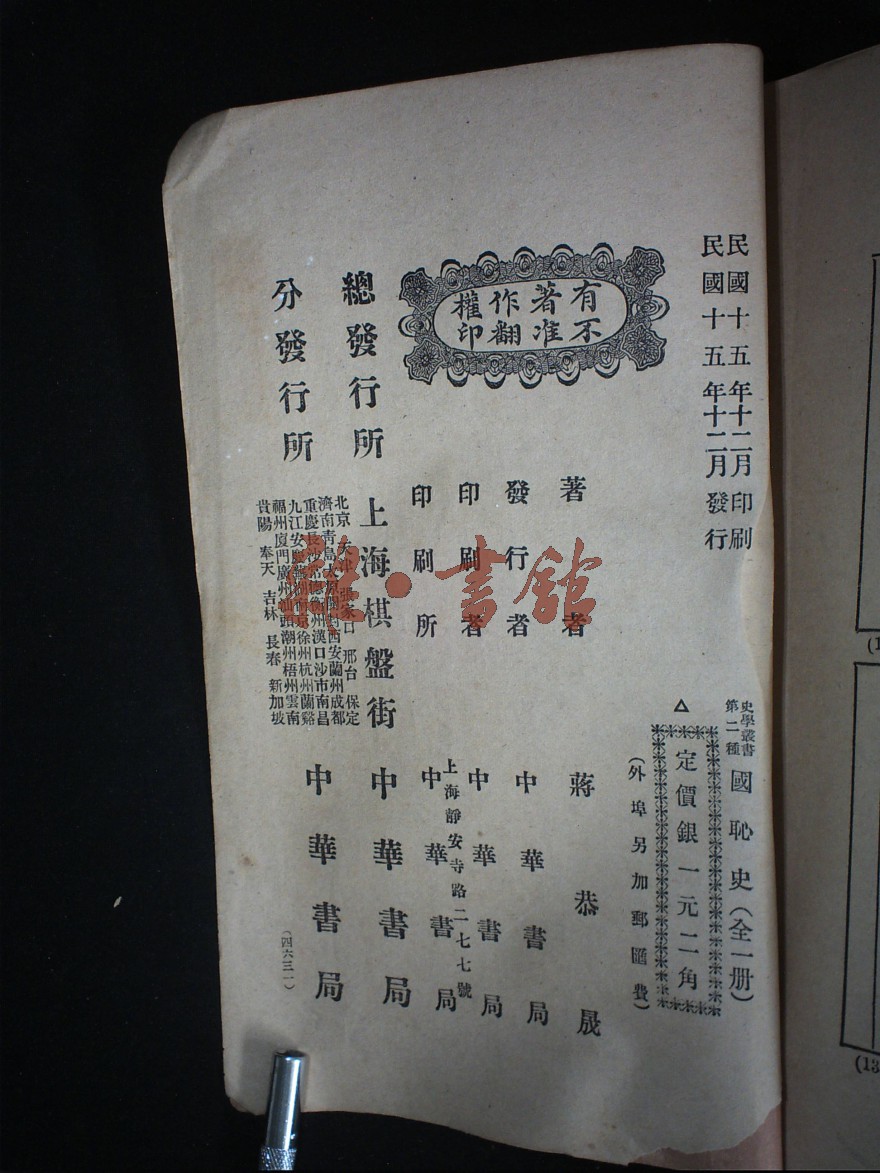 民國十五年十二月印刷
民國十五年十二月發行
史學叢書
第二種
國恥史(全一册)
△
定價銀一元二角
(外埠另加郵匯費)
有不
著准
作翻
權印
著者 蔣恭晟
發行者 中華書局
印刷者 中華書局
上海靜安寺路二七七號
印刷所 中華書局
總發行所 上海棋盤街 中華書局
分發行所
北京 天津 張家口 邢台 保定
濟南青島太原開封西安蘭州成都
重慶長沙常德衡州漢口沙市南昌
九江安慶蕪湖南京徐州杭州蘭谿
福州廈門廣州汕頭潮州梧州雲南
貴陽 奉天 吉林 長春 新加坡
中華書局
(四六三一)
雅·書館